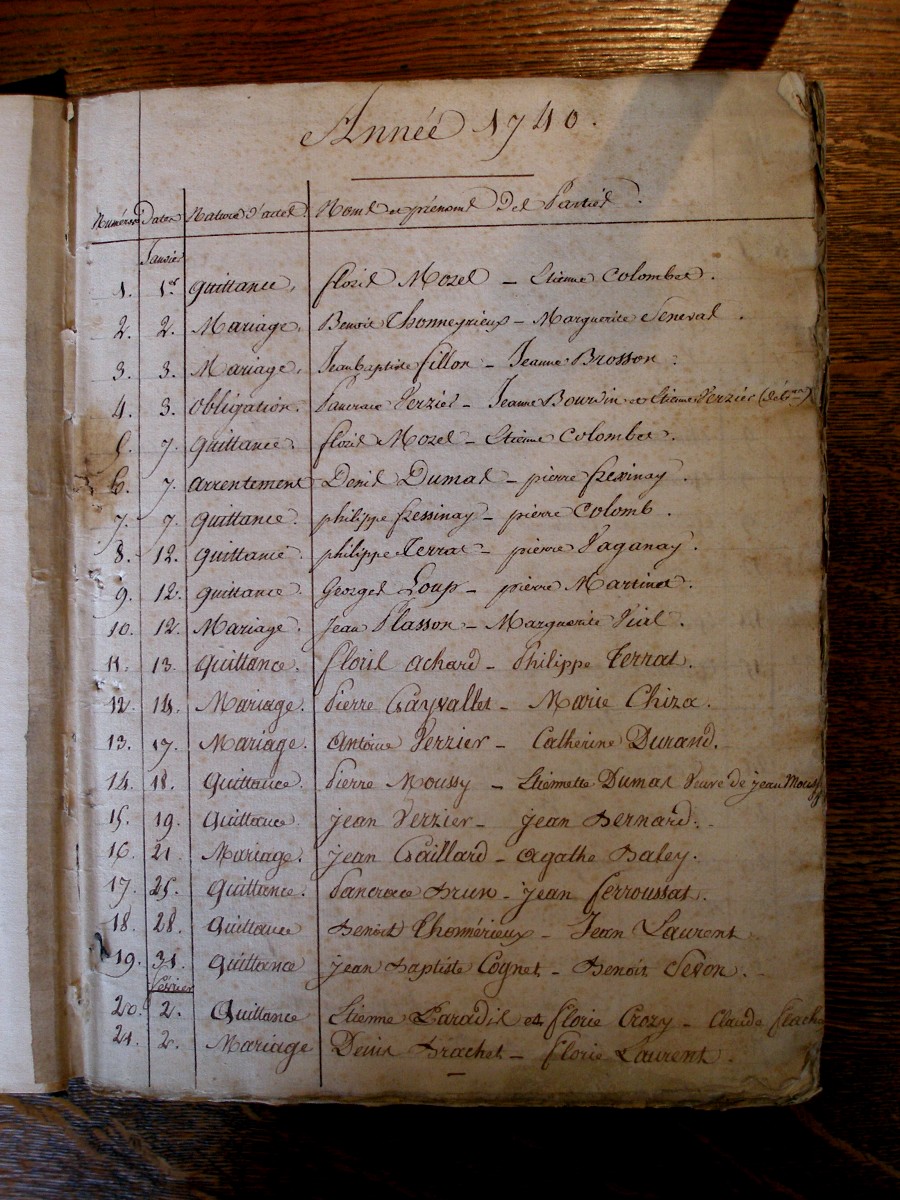 Année 1740.
Numéros Dates Nature d'actes Noms et prénoms des Parties.
Janvier
1. 1er quittance. floris Mozel - Etienne Colombet.
2. 2. Mariage. Benoit Thonneyrieux - Marguerite Seneval.
3. 3. Mariage. Jean baptiste fillon - Jeanne Brosson.
4. 3. obligation. Pancrace Verzier - Jeanne Bourdin et Etienne Verzier
5. 7. quittance floris Mozel - Etienne Colombet.
6. 7. arrentement Denis Dumas - pierre fressinay.
7. 7. quittance. philippe fressinay - pierre Colomb.
8. 12. quittance. philippe Terrat - pierre Vaganay.
9. 12. quittance. Georges Loup - pierre Martinot.
10. 12. Mariage. Jean Plasson - Marguerite Vial.
11. 13. quittance. floris achard - Philippe Terrat.
12. 14. Mariage. Pierre Gayvallet - Marie Chiza.
13. 17. Mariage. Antoine Verrier - Catherine Durand.
14. 18. Quittance. Pierre Moussy - Etiennette Dumas Veuve de jean Moussy
15. 19. Quittance jean Verzier - jean Bernard.
16. 21. Mariage. jean Gaillard - agathe Baley.
17. 25. Quittance. Pancrace Brun - jean ferroussat.
18. 28. Quittance Benoit Thomérieux - Jean Laurent
19. 31. Quittance jean Baptiste Cognet - Benoit Sevon.
février
20. 2. Quittance Etienne Paradis et florie Crozy - Claude flache
21. 2. Mariage Denis Brachet - florie Laurent.